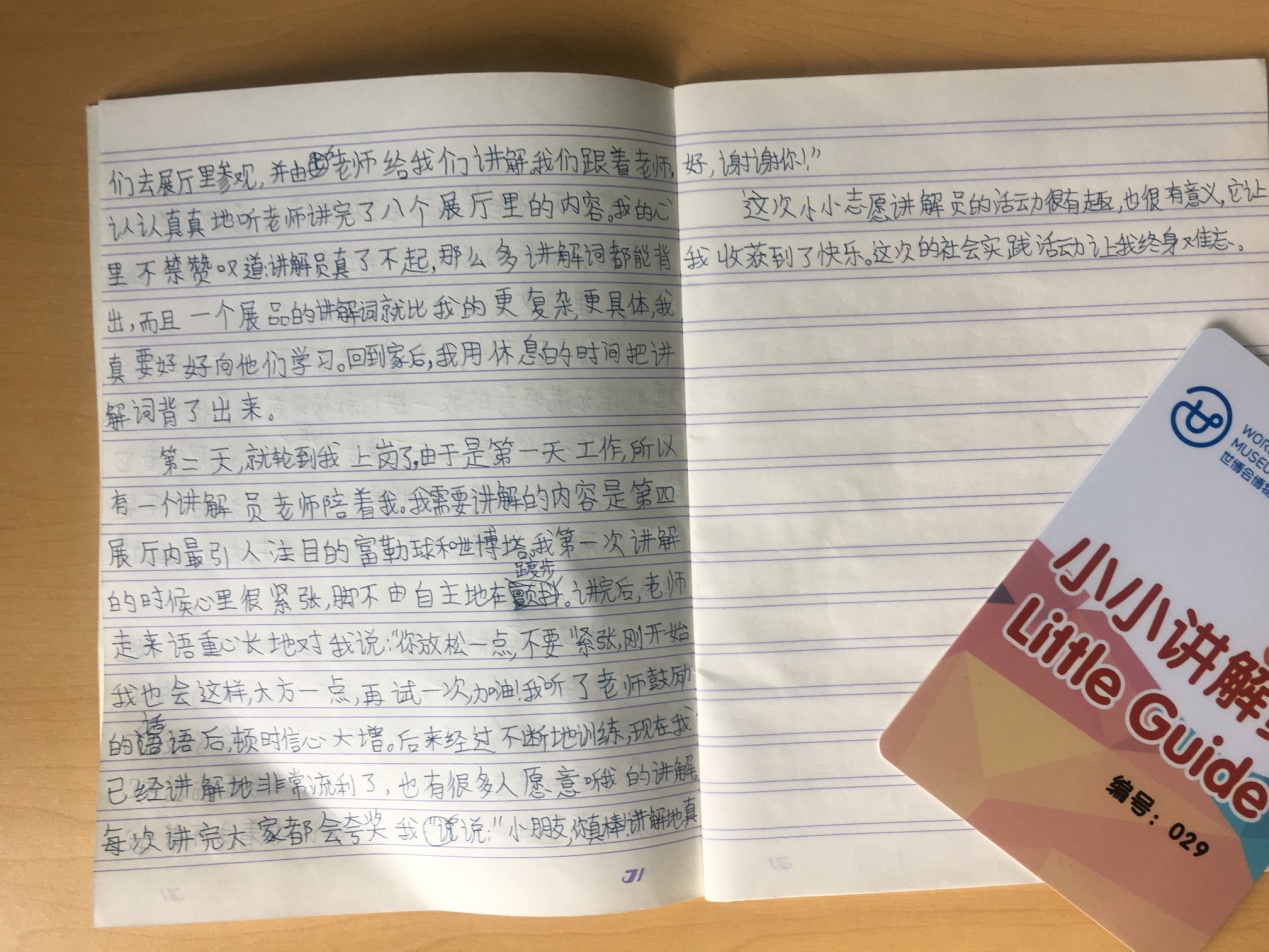 们去展厅里参观,并由老师给我们讲解。我们跟着老师,
认认真真地听老师讲完了八个展厅里的内容。我的心
里不禁赞叹道:讲解员真了不起,那么多讲解词都能背
出,而且一个展品的讲解词就比我的更复杂,更具体,我
真要好好向他们学习。回到家后,我用休息的时间把讲
解词背了出来。
第二天,就轮到我上岗了,由于是第一天工作,所以
有一个讲解员老师陪着我。我需要讲解的内容是第四
展厅内最引人注目的富勒球和世博塔。我第一次讲解
踱步
的时候心里很紧张,脚不由自主地在。讲完后,老师
走来语重心长地对我说:“你放松一点,不要紧张,刚开始
我也会这样,大方一点,再试一次,加油!我听了老师鼓励
话
的语后,顿时信心大增。后来经过不断地训练,现在我
已经讲解地非常流利了,也有很多人愿意听我的讲解
每次讲完大家都会夸奖我说:“小朋友,你真棒!讲解地真
31
好,谢谢你!”
这次小小志愿讲解员的活动很有趣,也很有意义,它让
我收获到了快乐。这次的社会实践活动让我终身难忘。
WOR
MUSEU
世博会博
小小讲解
Little Guide
编号:029